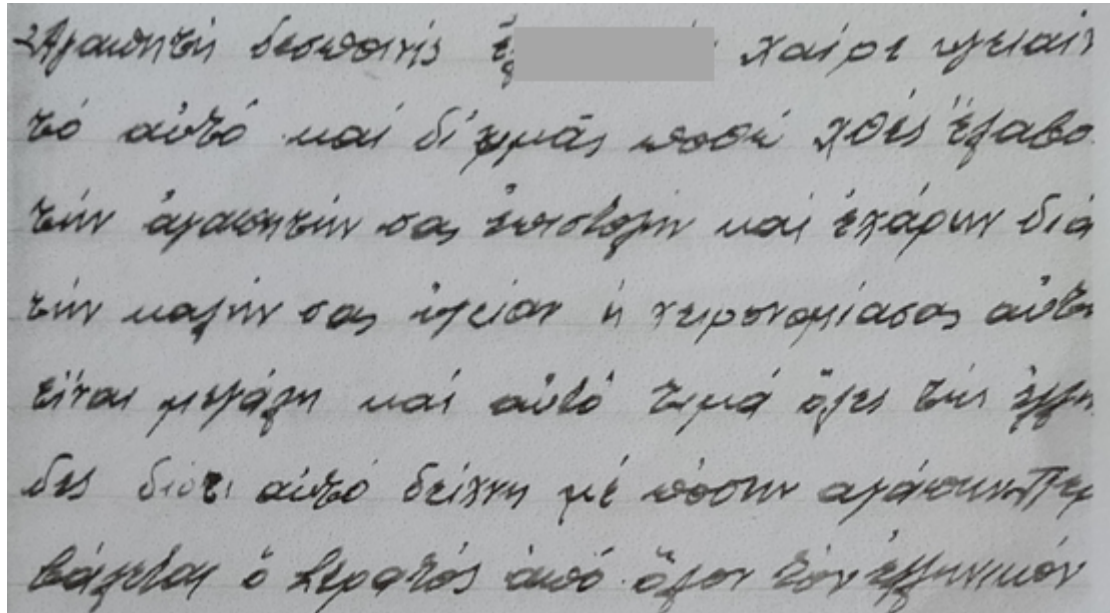 Αγαπητή δεσποινής χαίρε υγειαίν
τό αὐτό καί δί ἡμᾶς ποθῶ χθές ἔλαβα
τήν ἀγαπητήν σας ἐπιστολήν καί ἐχάρην διά
τήν καλήν σας ὑγείαν ἡ χειρονομίασας αὐτη
εἶναι μεγάλη καί αὐτό τιμά ὅλες τίς ἑλλη
δες διότι αὐτό δείχνη μέ πόσην αγάπην Περι
βάλεται ὁ στρατός ἀπό ὅλον τόν ἑλληνικόν